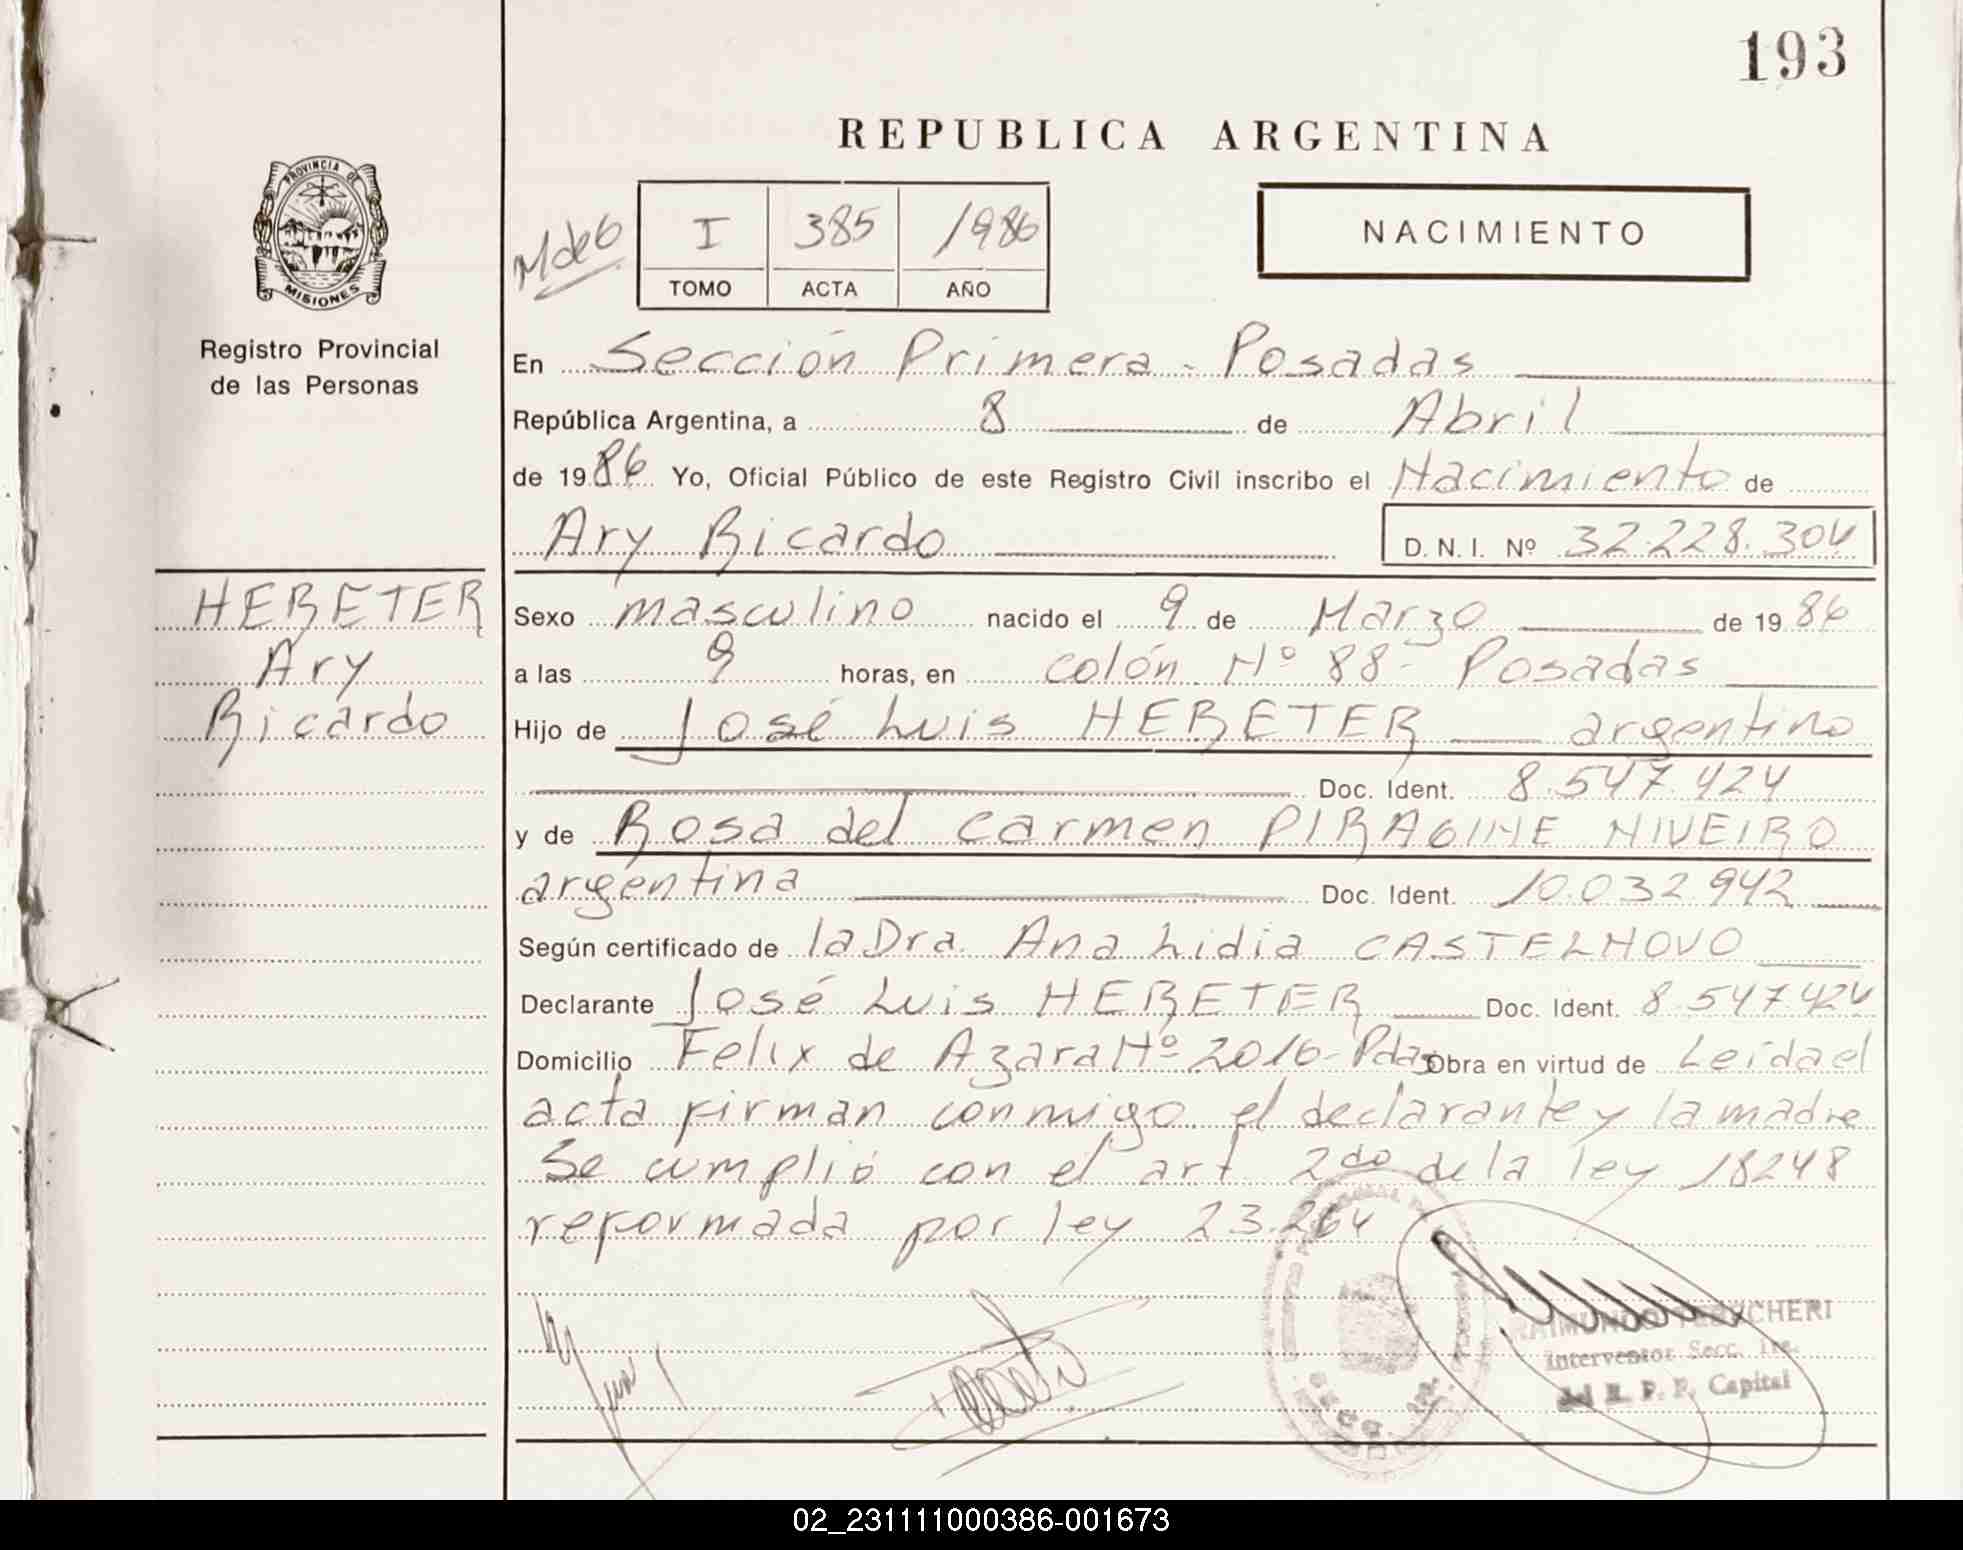 193
REPUBLICA ARGENTINA
PROVINCIA DE
MISIONES
Registro Provincial
de las Personas
I 385 1986
TOMO ACTA AÑO
NACIMIENTO
En Sección Primera - Posadas
República Argentina, a 8 de Abril
de 1986 Yo, Oficial Público de este Registro Civil inscribo el Nacimiento de
Ary Ricardo D.N.I. Nº 32.228.304
HEBETER
Ary
Ricardo
Sexo masculino nacido el 9 de Marzo de 1986
a las 9 horas, en colón Nº 88 - Posadas
Hijo de José Luis HEBETER argentino
Doc. Ident. 8.547.424
y de Rosa del Carmen PIRAGINE NIVEIRO
argentina Doc. Ident. 10.032.942
Según certificado de la Dra. Ana Lidia CASTELNOVO
Declarante José Luis HEBETER Doc. Ident. 8.547.424
Domicilio Felix de Azara Nº 2016 - Pdas Obra en virtud de Leída el
acta firman conmigo el declarante y la madre
Se cumplió con el art 2do de la ley 18248
reformada por ley 23.264
Interventor Secc. 1ra.
del R. P. P. Capital
02_231111000386-001673